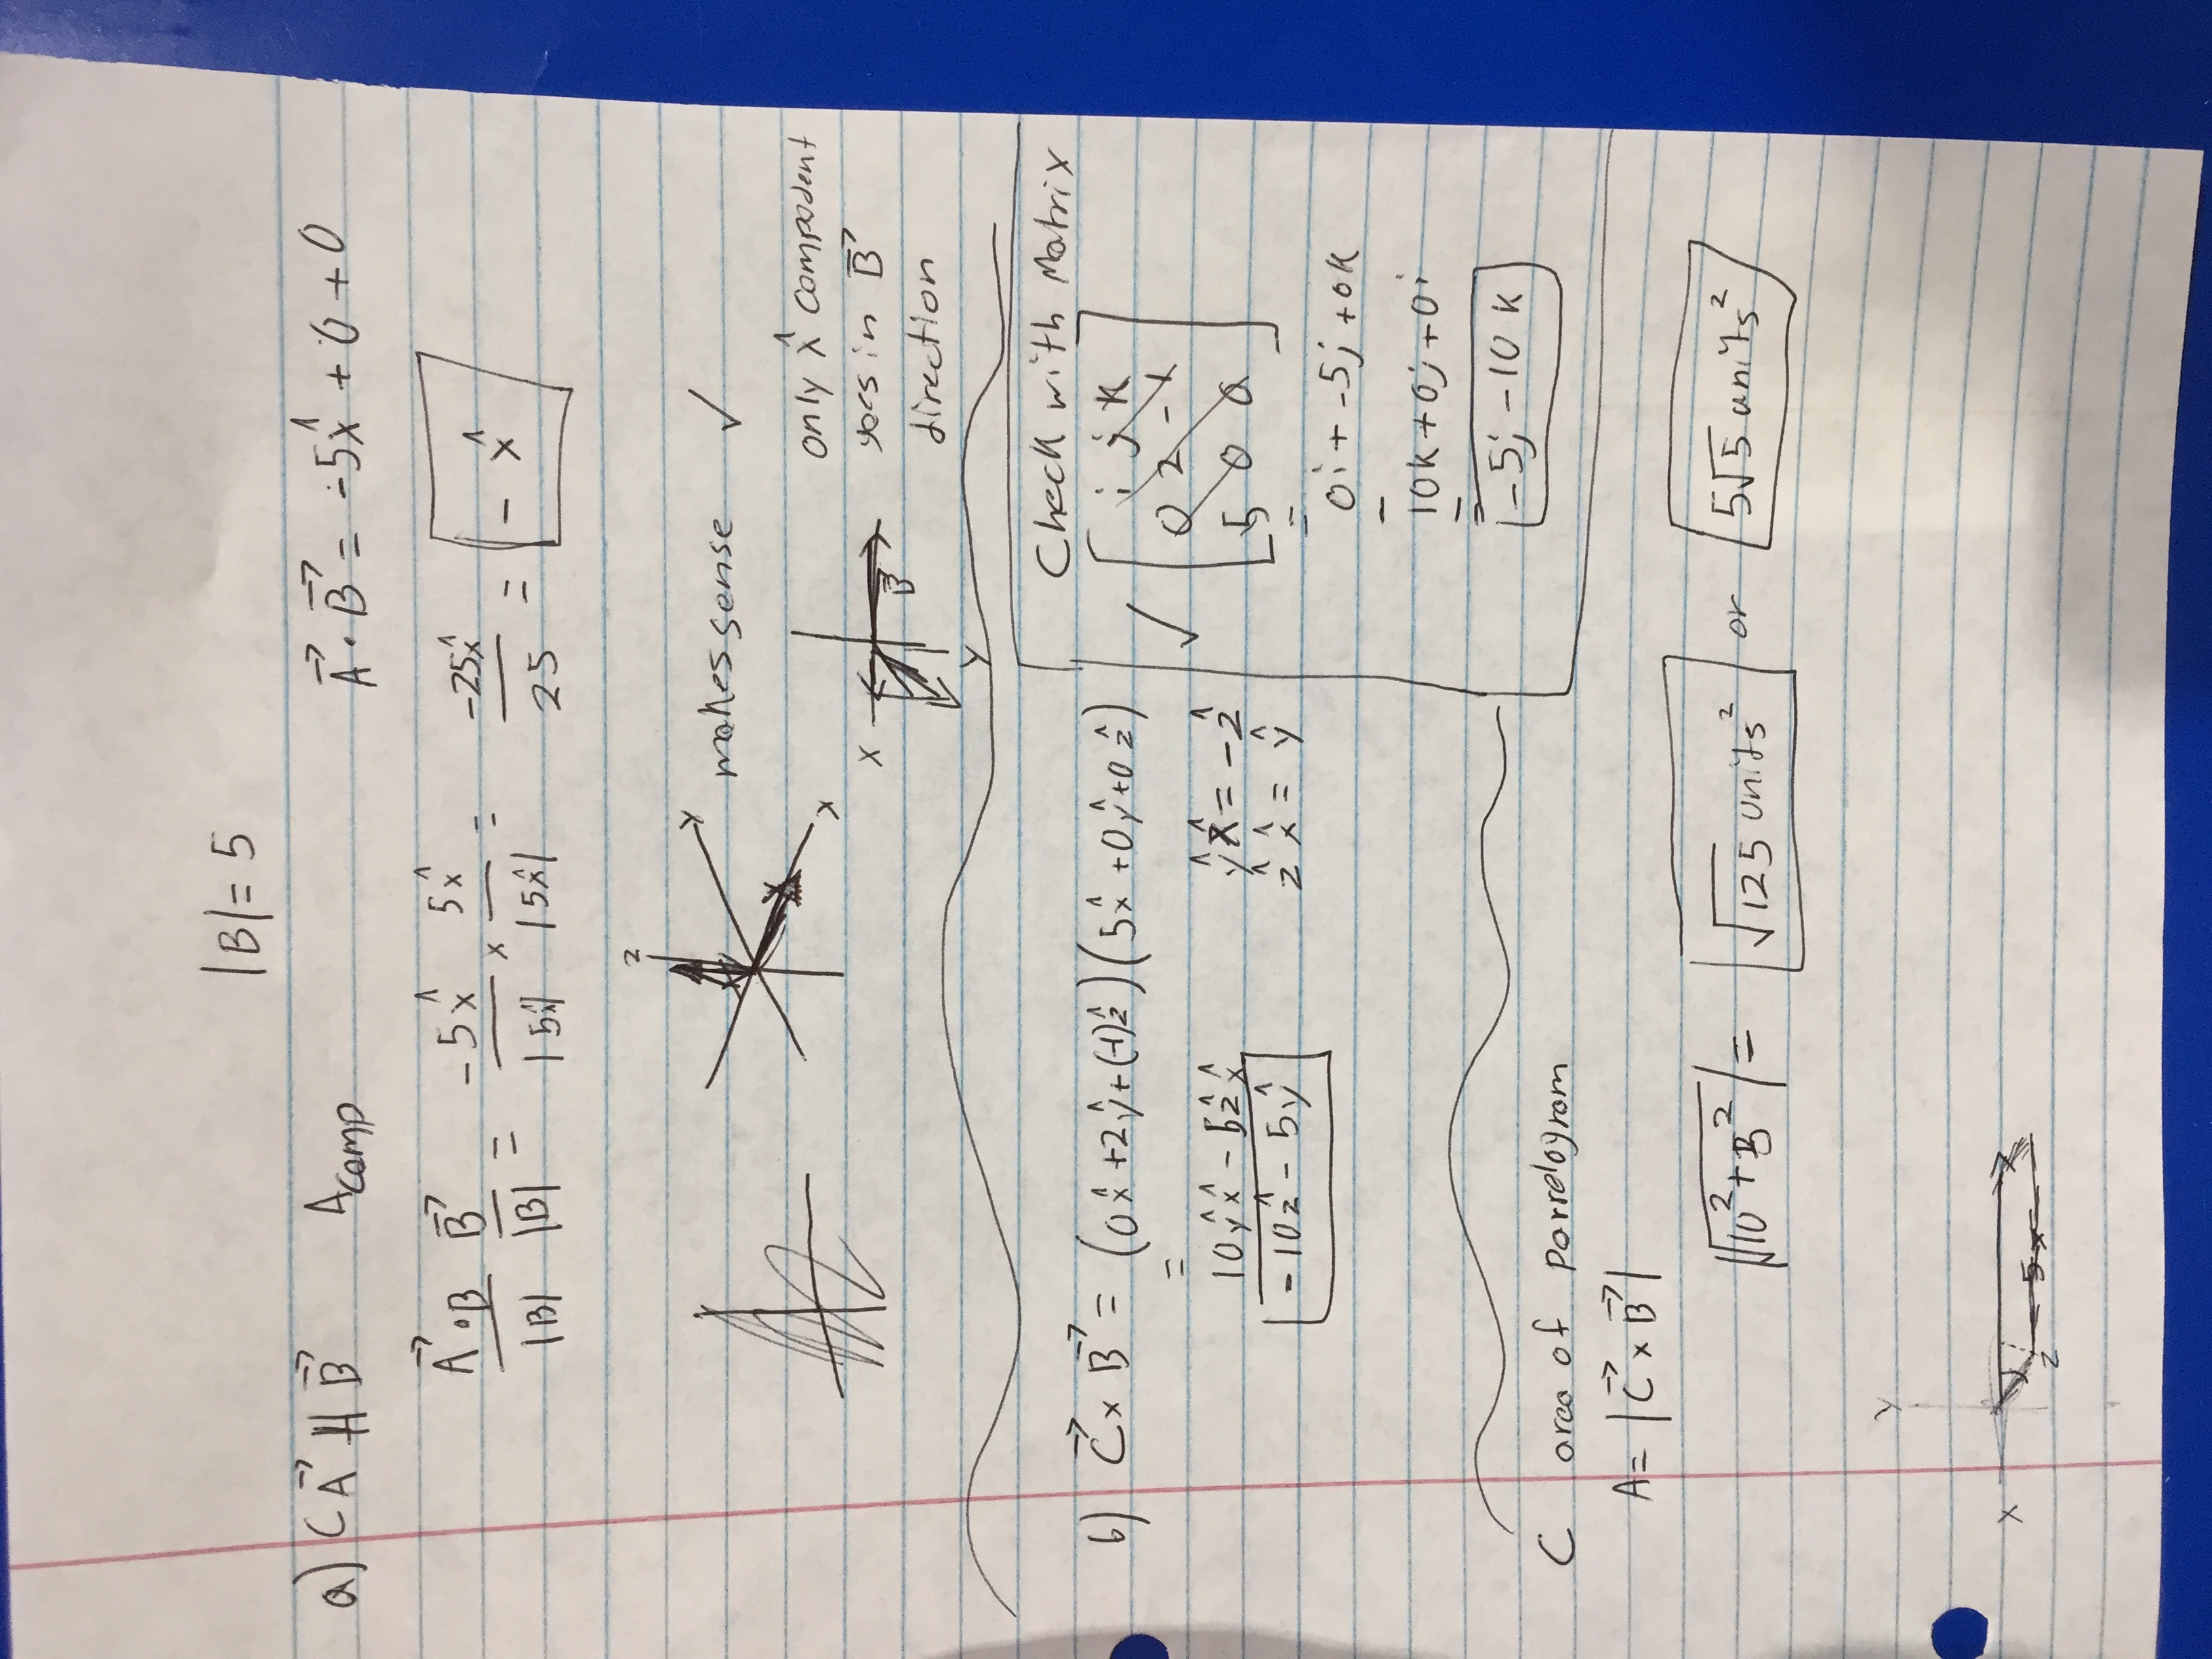 |B| = 5
a) C A⃗ ∦ B⃗ A_comp A⃗ · B⃗ = -5x̂ + 0 + 0
A⃗ · B / |B| B⃗ / |B| = -5x̂ / |5x̂| × 5x̂ / |5x̂| = -25x̂ / 25 = - x̂
z
y
x
makes sense ✓
x
y
B⃗
only x̂ component
goes in B⃗
direction
b) C⃗ × B⃗ = (0x̂ + 2ŷ + (-1)ẑ)(5x̂ + 0ŷ + 0ẑ)
=
10ŷx̂ - 5ẑx̂ ŷx̂ = -ẑ
-10ẑ - 5ŷ ẑx̂ = ŷ
Check with Matrix
✓ i j k
0 2 -1
5 0 0
=
0i + -5j + 0k
-
10k + 0j + 0i
=
-5j - 10k
C area of parrelogram
A = |C⃗ × B⃗|
|√10² + 5²| = √125 units² or 5√5 units²
y
x
z
5x